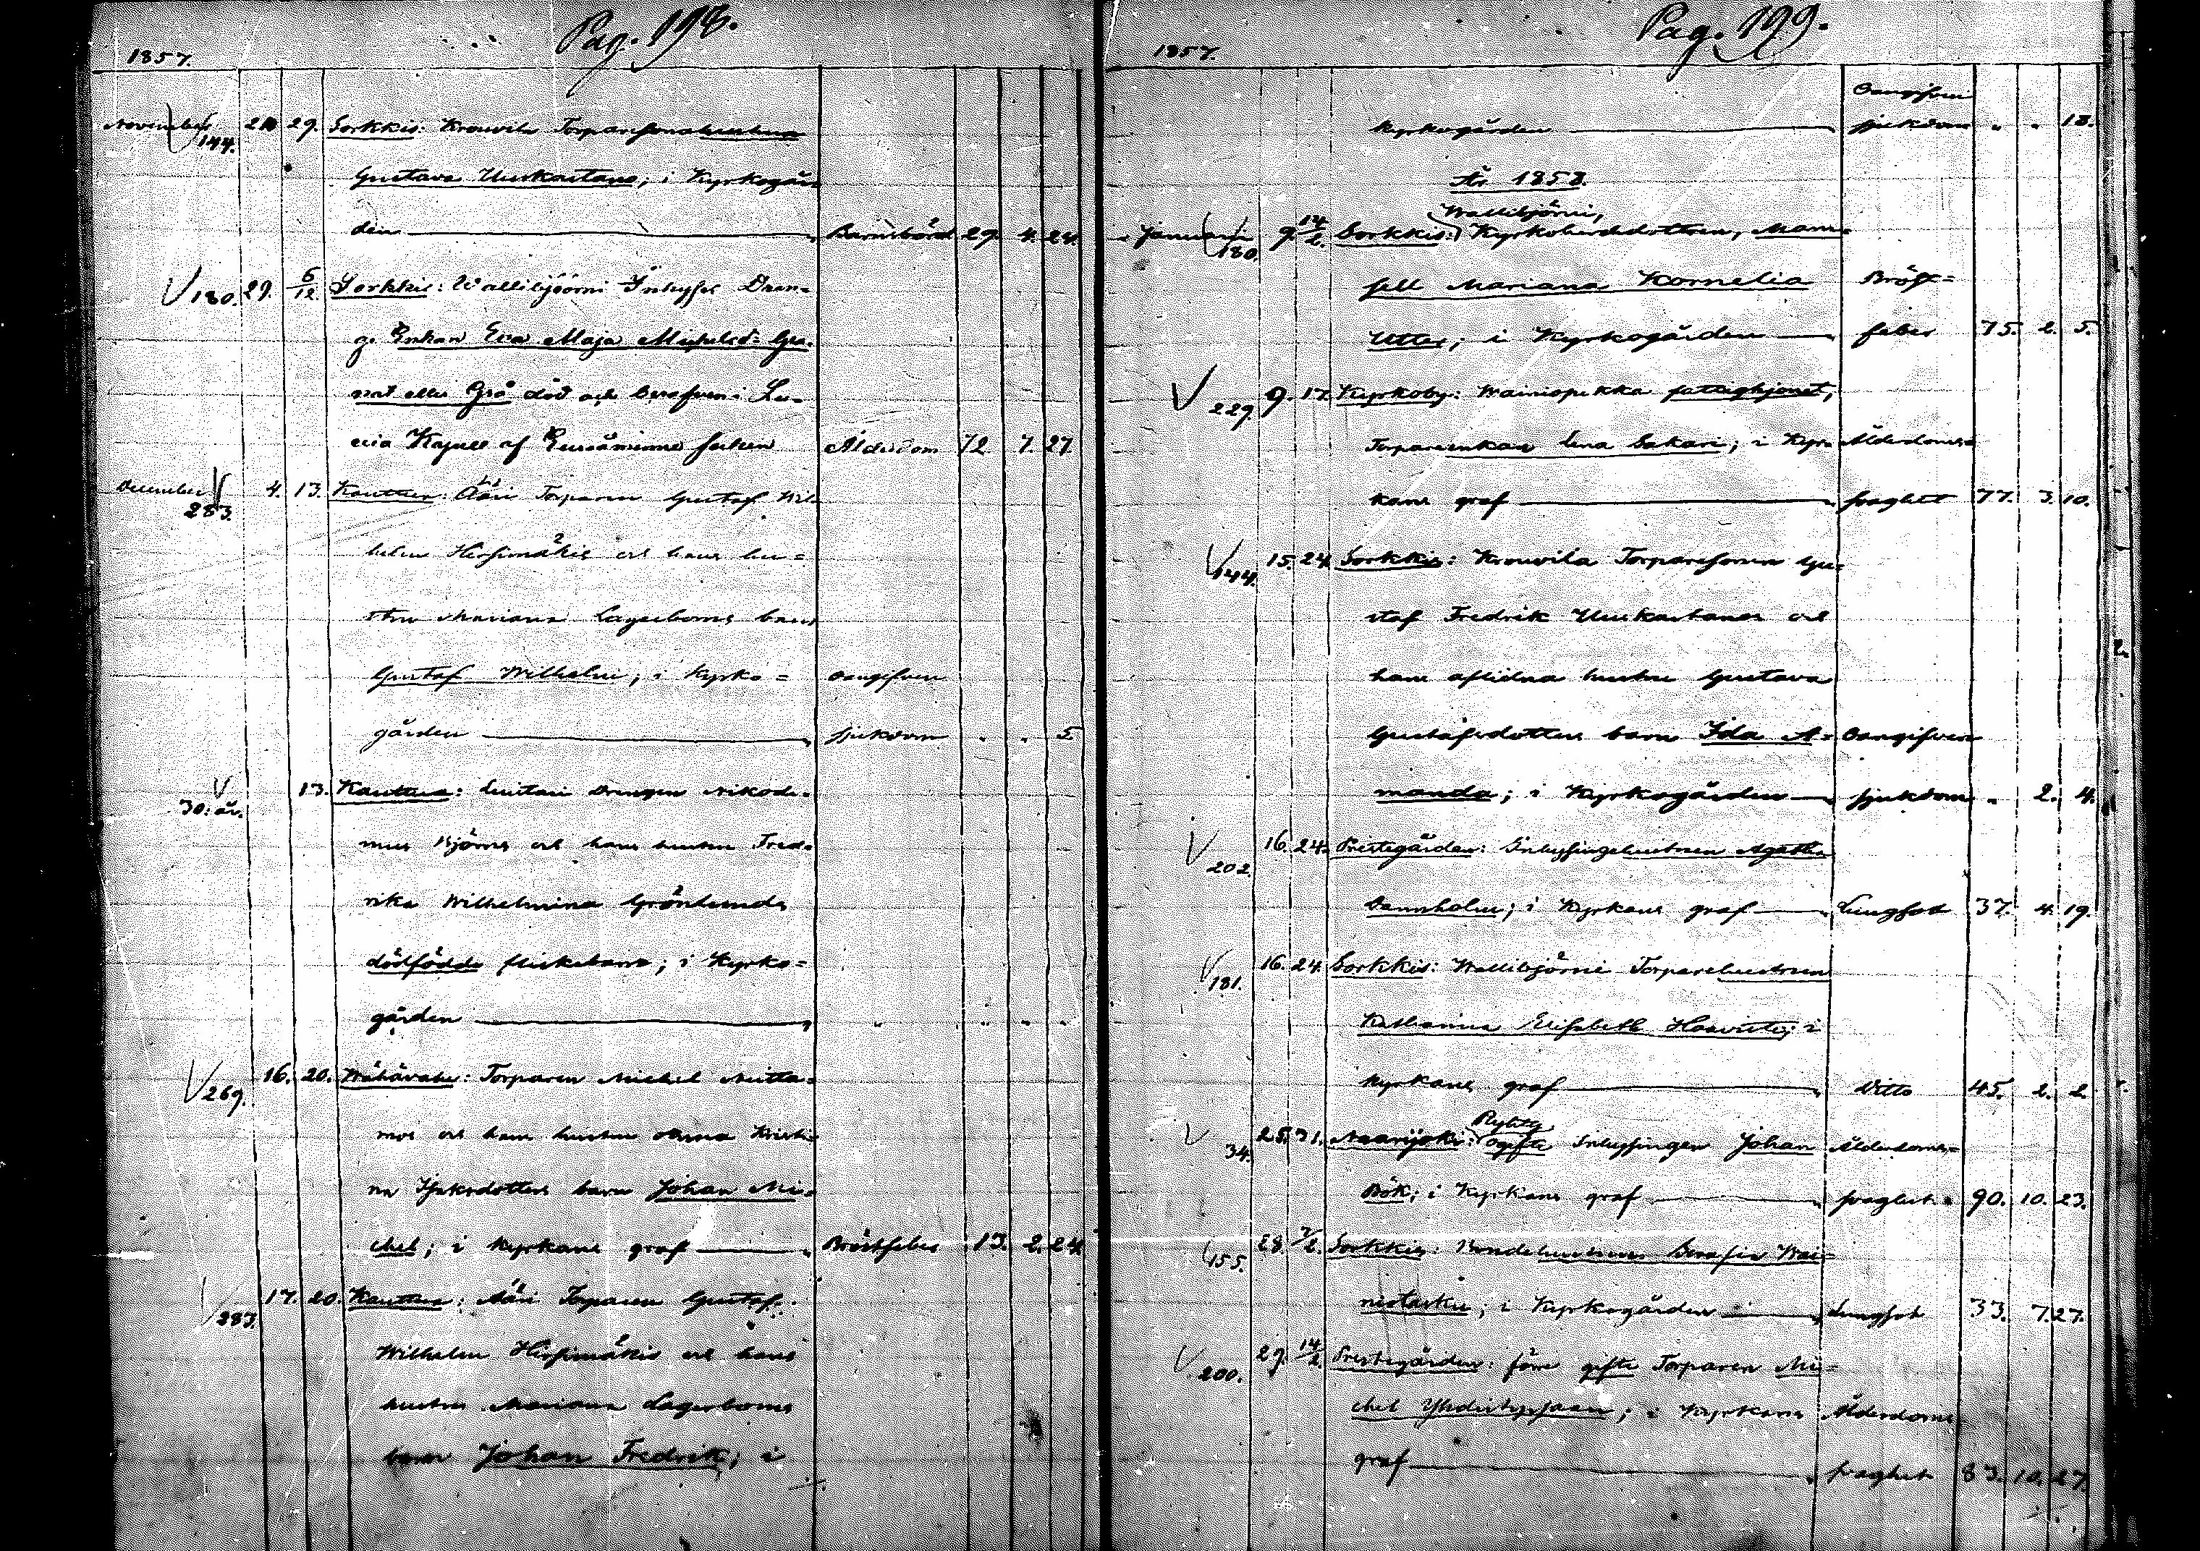 Pag. 198.
1857.
November 144. 21 29. Sorkkis: Krouvila Torparesonshustrun
Gustava Uuskartano; i Kyrkogår
den Barnsbörd 29. 4. 24.
180. 29. 6/12 Sorkkis: Wallibjörni Inhyses Dren-
g. Enkan Eva Maja Michelsd:
eller Grå död och begrafven i Lu-
via Kapell af socken Ålderdom 72. 7. 27.
December 283. 4. 13. Kauttua: Ääri Torparen Gustaf Wil
helm Hirsimäkis och hans hu=
strus Mariana Lagerboms barn
Gustaf Wilhelm; i Kyrko= Oangifven
gården sjukdom " " 5.
30: år. 13. Kauttua: Drengen Nikode-
mus Björns och hans hustru Fred-
rika Wilhelmina Grönlunds
dödfödda flickebarn; i Kyrko=
gården " " " "
269. 16. 20. Torparen Michel
mos och hans hustru Kristi-
na Isaksdotters barn Johan Mi-
chel; i Kyrkans graf Bröstfeber 13. 2. 24.
283. 17. 20. Kauttua: Ääri Torparen Gustaf
Wilhelm Hirsimäkis och hans
hustrus Mariana Lagerboms
barn Johan Fredrik; i
Pag. 199.
1857.
Oangifven
kyrkogården sjukdom " " 13.
År 1858.
Wallibjörni,
Januari 180. 9. 14/2. Sorkkis: Kyrkoherdedottren, Mam=
sell Mariana Kornelia Bröst=
Utter; i Kyrkogården feber 75. 2. 5.
229. 9. 17. Kyrkoby: Wainiopekka fattighjonet,
Torpareenkan Lena Sakari; i Kyr- Ålderdoms=
kans graf svaghet 77. 3. 10.
144. 15. 24. Sorkkis: Krouvila Torparesonen Gu=
staf Fredrik Uuskartanos och
hans aflidna hustru Gustava
Gustafsdotters barn Ida A= Oangifven
manda; i Kyrkogården sjukdom " 2. 4.
202. 16. 24. Prestegården: Inhysingehustrun Agatha
Dannholm; i Kyrkans graf Lungsot 37. 4. 19.
181. 16. 24. Sorkkis: Wallibjörni Torparehustrun
Katharina Elisabeth Haavisto; i
kyrkans graf Ditto 45. 2. 2.
34. 25. 31. Naarijoki: ogifte Inhysingen Johan Ålderdoms=
Bök; i Kyrkans graf svaghet. 90. 10. 23.
155. 28. 7/2. Sorkkis: Bondehustrun Serafia Wai-
niotasku; i Kyrkogården Lungsot 33. 7. 27.
200. 29. 14/2. Prestegården: förre gifte Torparen Mi=
chel i Kyrkans Ålderdoms
graf svaghet 83. 10. 27.